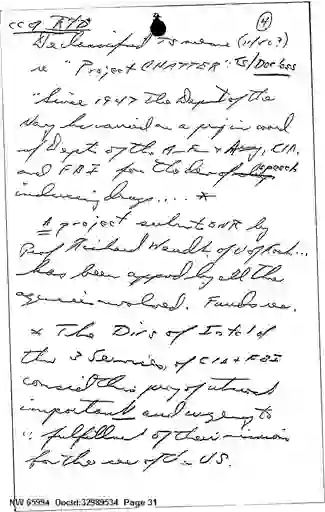 cc of R/D
4
Declassified TS memo (11/50?)
re "Project CHATTER" TS/Doc 655
"Since 1947 the Dept of the
Navy has carried on a proj in coord
w/ Dept of the A.F. + Army, CIA,
and FBI for the dev of speech
inducing drugs.... *
A project submt ONR by
Prof Richard Wendt of U of Roch...
has been appvd by all the
agencies involved. Funds
* The Dirs of Intel of
the 3 Services, of CIA + FBI
consid this proj of utmost
important and urgency to
fulfillmt of their missions
for the sec of the US.
NW 65994 Docld:32989534 Page 31